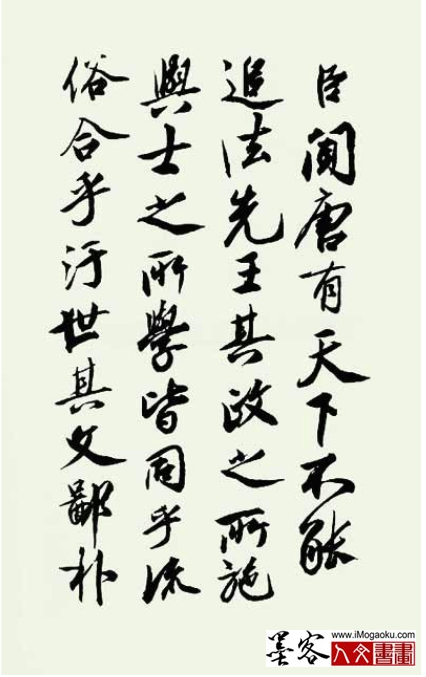 臣闻唐有天下不能
追法先王其政之所施
與士之所學皆同乎流
俗合乎汙世其文鄙朴
www.iMogaoku.com
墨客
人文書畫